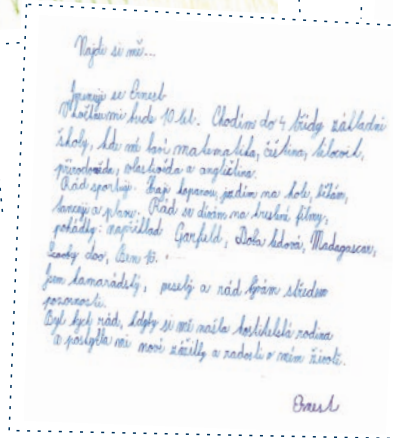 Najdi si mě...
Jmenuji se Ernest
V mi bude 10 let. Chodím do 4 třídy základní
školy, kde mě baví matematika, čeština, tělocvik,
přírodověda, vlastivěda a angličtina.
Rád sportuji. Hraji kopanou, jezdím na kole, běhám,
tancuji a plavu. Rád se dívám na kreslené filmy,
pohádky: například Garfield, Doba ledová, Madagascar,
Scooby doo, Ben 10.
Jsem kamarádský, veselý a rád bývám středem
pozornosti.
Byl bych rád, kdyby si mě našla hostitelská rodina
a poskytla mi nové zážitky a radosti v mém životě.
Ernest